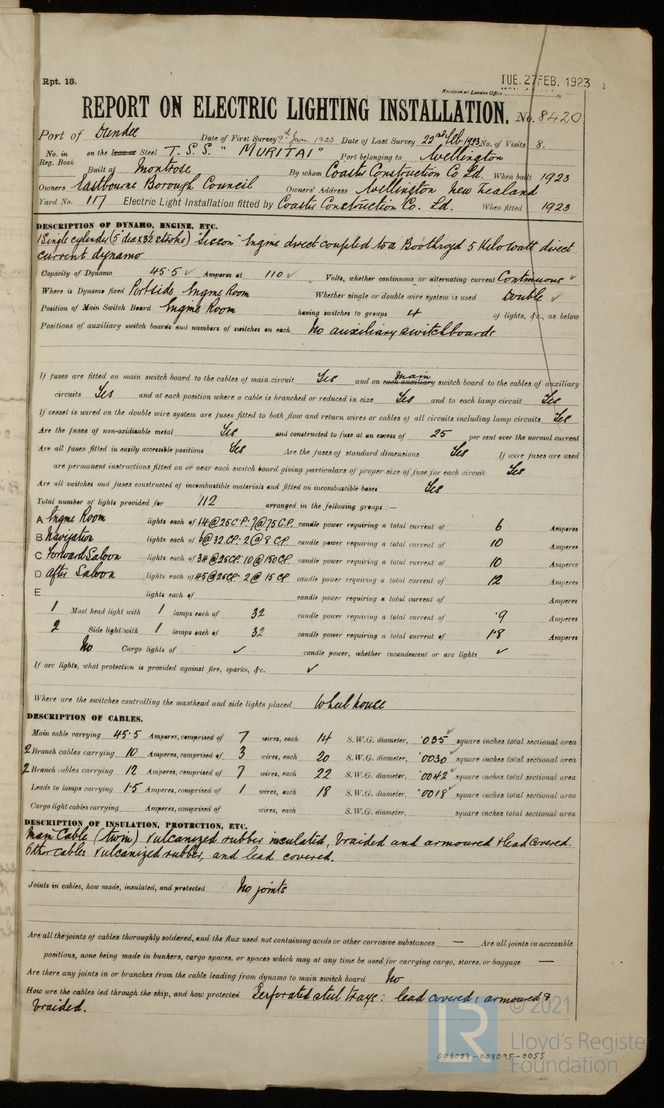 Rpt. 13.
TUE. 27 FEB. 1923
Received at London Office
REPORT ON ELECTRIC LIGHTING INSTALLATION. No. 8420
Port of Dundee Date of First Survey 9th Jan. 1923 Date of Last Survey 22nd Feb 1923 No. of Visits 8.
No. in Reg. Book on the Iron or Steel T.S.S. "MURITAI" Port belonging to Wellington
Built at Montrose By whom Coaster Construction Co Ld. When built 1923
Owners Eastbourne Borough Council Owners' Address Wellington New Zealand
Yard No. 117 Electric Light Installation fitted by Coaster Construction Co. Ld. When fitted 1923
DESCRIPTION OF DYNAMO, ENGINE, ETC.
1 Single cylinder (5" dia x 3½ stroke) "Sisson" Engine direct coupled to a Boothroyd 5 Kilowatt direct
current dynamo
Capacity of Dynamo 45.5 ✓ Amperes at 110 ✓ Volts, whether continuous or alternating current Continuous ✓
Where is Dynamo fixed Port side Engine Room Whether single or double wire system is used Double ✓
Position of Main Switch Board Engine Room having switches to groups 4 of lights, &c., as below
Positions of auxiliary switch boards and numbers of switches on each No auxiliary switchboards
If fuses are fitted on main switch board to the cables of main circuit Yes and on each auxiliary main switch board to the cables of auxiliary
circuits Yes and at each position where a cable is branched or reduced in size Yes and to each lamp circuit Yes
If vessel is wired on the double wire system are fuses fitted to both flow and return wires or cables of all circuits including lamp circuits Yes
Are the fuses of non-oxidizable metal Yes and constructed to fuse at an excess of 25 per cent over the normal current
Are all fuses fitted in easily accessible positions Yes Are the fuses of standard dimensions Yes If wire fuses are used
are permanent instructions fitted on or near each switch board giving particulars of proper size of fuse for each circuit Yes
Are all switches and fuses constructed of incombustible materials and fitted on incombustible bases Yes
Total number of lights provided for 112 arranged in the following groups :—
A Engine Room lights each of 14 @ 25 C.P. 7 @ 75 C.P. candle power requiring a total current of 6 Amperes
B Navigation lights each of 6 @ 32 C.P. 2 @ 8 C.P. candle power requiring a total current of 10 Amperes
C Forward Saloon lights each of 34 @ 25 C.P. 10 @ 150 C.P. candle power requiring a total current of 10 Amperes
D After Saloon lights each of 45 @ 25 C.P. 2 @ 15 C.P. candle power requiring a total current of 12 Amperes
E lights each of candle power requiring a total current of Amperes
1 Mast head light with 1 lamps each of 32 candle power requiring a total current of .9 Amperes
2 Side light with 1 lamps each of 32 candle power requiring a total current of 1.8 Amperes
No Cargo lights of ✓ candle power, whether incandescent or arc lights ✓
If arc lights, what protection is provided against fire, sparks, &c. ✓
Where are the switches controlling the masthead and side lights placed Wheelhouse
DESCRIPTION OF CABLES.
Main cable carrying 45.5 Amperes, comprised of 7 wires, each 14 S.W.G. diameter, .035 ✓ square inches total sectional area
2 Branch cables carrying 10 Amperes, comprised of 3 wires, each 20 S.W.G. diameter, .0030 ✓ square inches total sectional area
2 Branch cables carrying 12 Amperes, comprised of 7 wires, each 22 S.W.G. diameter, .0042 ✓ square inches total sectional area
Leads to lamps carrying 1.5 Amperes, comprised of 1 wires, each 18 S.W.G. diameter, .0018 ✓ square inches total sectional area
Cargo light cables carrying Amperes, comprised of wires, each S.W.G. diameter, square inches total sectional area
DESCRIPTION OF INSULATION, PROTECTION, ETC.
Main Cable (twin) vulcanized rubber insulated, braided and armoured & lead covered.
Other cables vulcanized rubber, and lead covered.
Joints in cables, how made, insulated, and protected No joints
Are all the joints of cables thoroughly soldered, and the flux used not containing acids or other corrosive substances — Are all joints in accessible
positions, none being made in bunkers, cargo spaces, or spaces which may at any time be used for carrying cargo, stores, or baggage —
Are there any joints in or branches from the cable leading from dynamo to main switch board No
How are the cables led through the ship, and how protected Perforated steel trays: lead covered: armoured &
braided.
© 2021
LR
Lloyd's Register
Foundation
008087-008095-0055